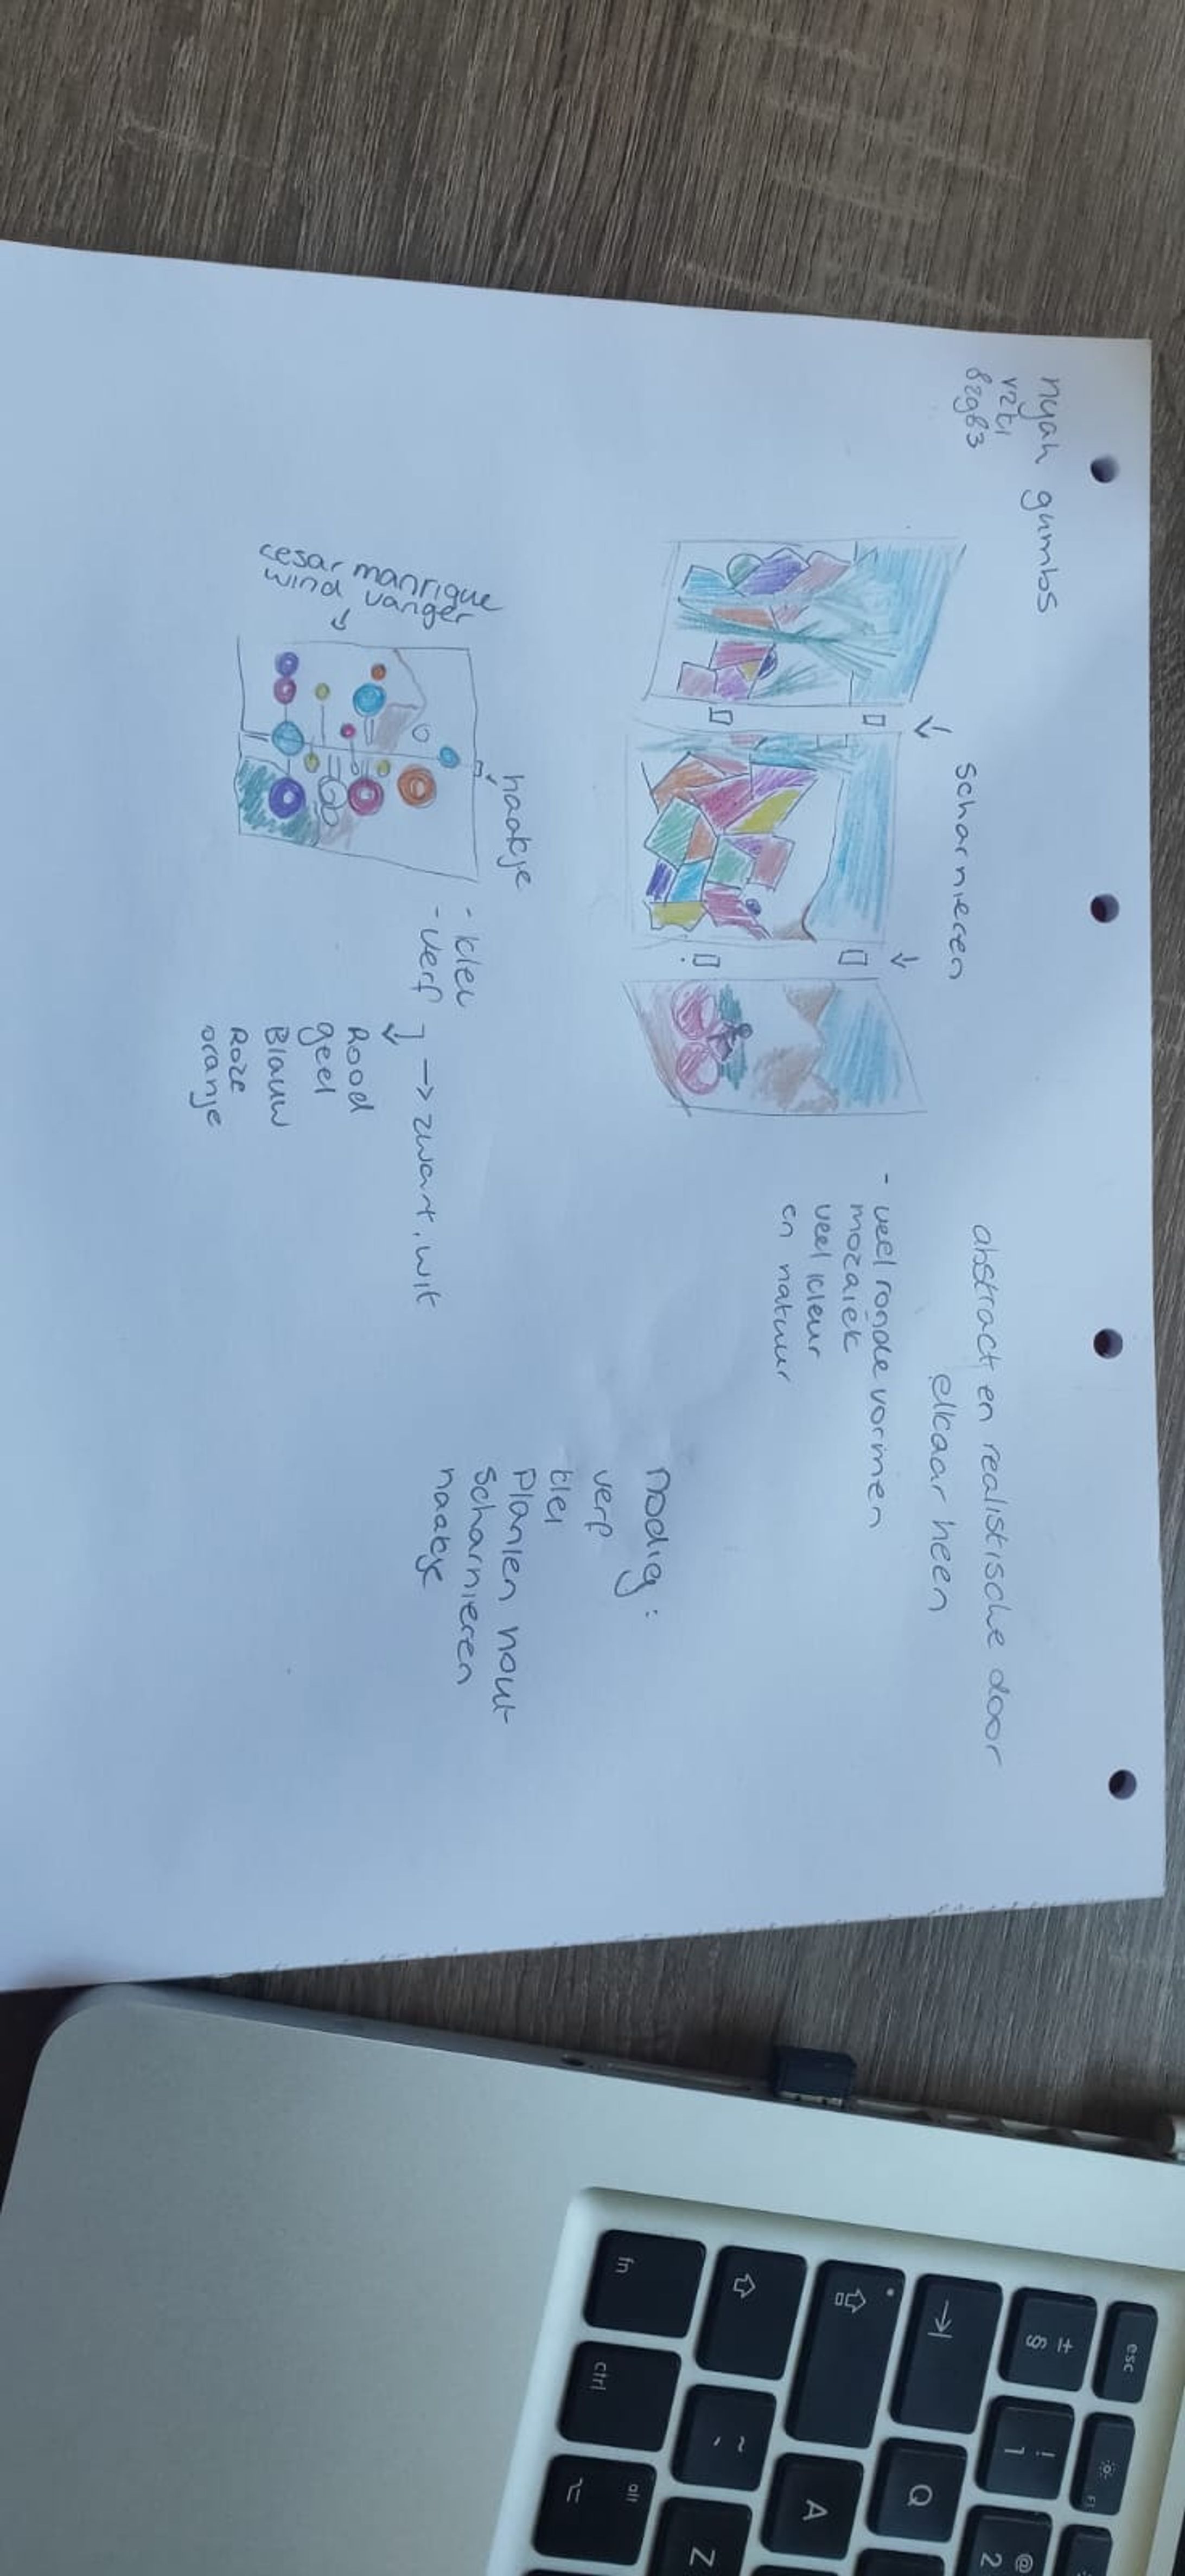 nyah gumbs
v2t1
82983
scharnieren
abstract en realistische door
elkaar heen
- veel ronde vormen
mozaiek
veel kleur
en natuur
cesar manrique
wind vanger
haakje
- klei
- verf ] → zwart, wit
Rood
geel
Blauw
Roze
oranje
nodig:
verf
klei
Planken hout
Scharnieren
haakje
esc
±
§
!
1
@
2
F1
Q
A
~
`
Z
fn
ctrl
alt